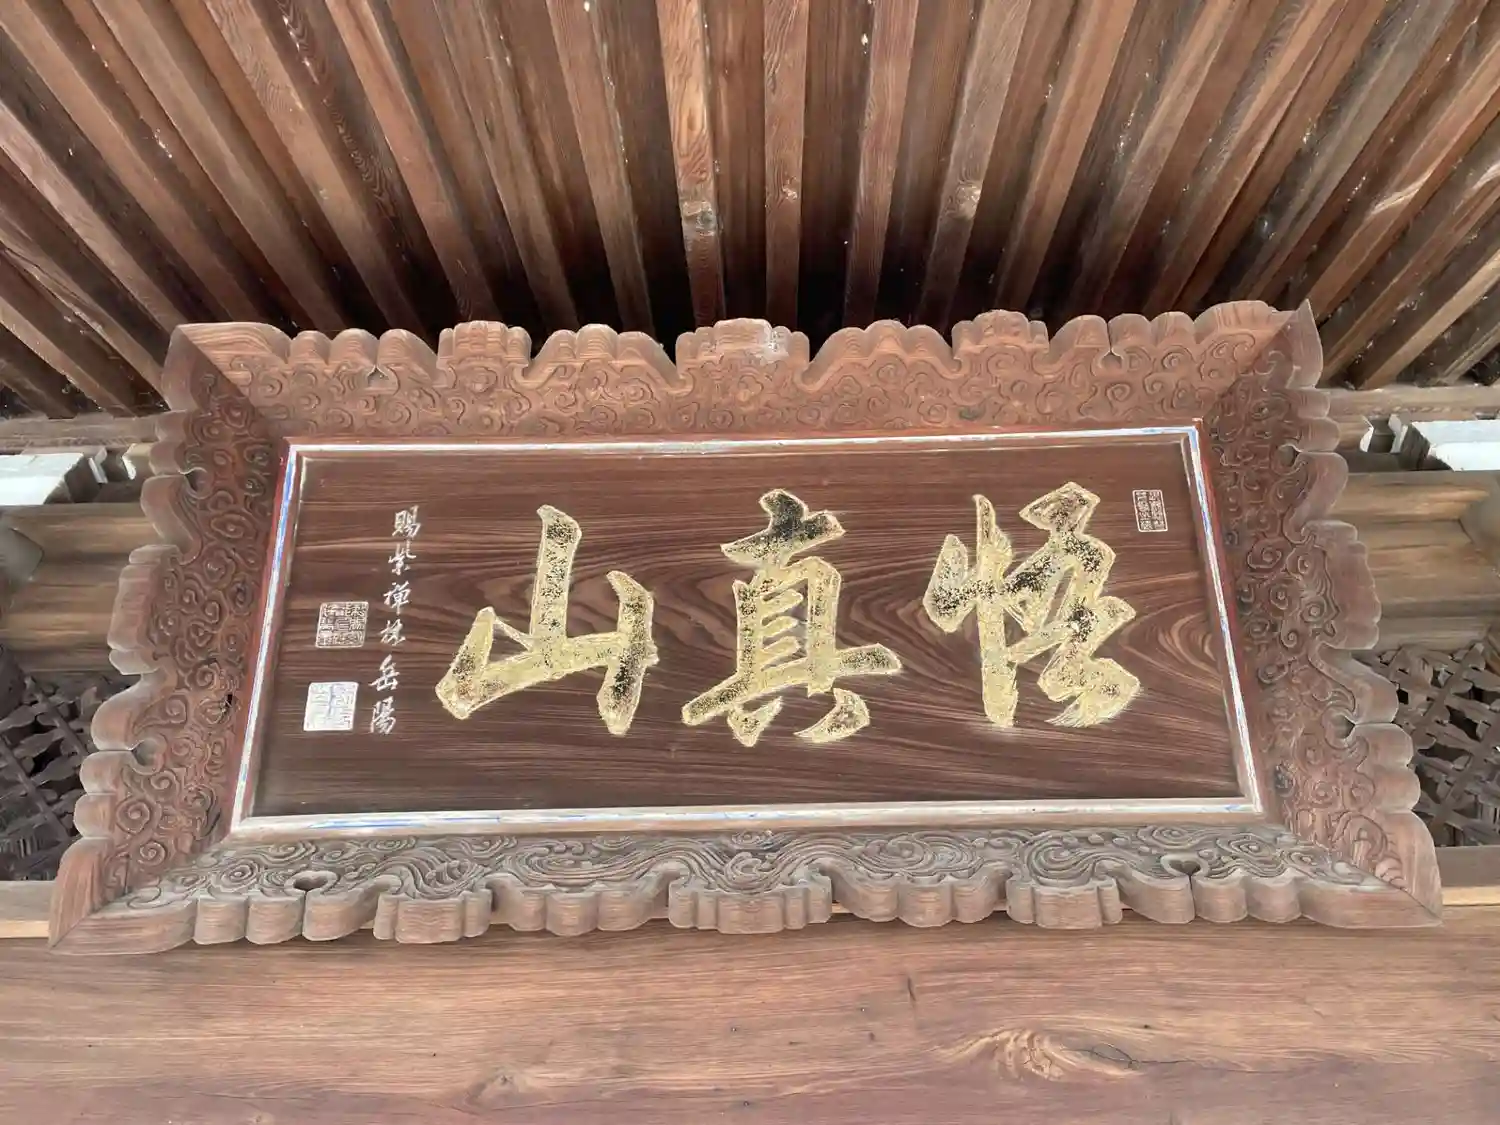 悟真山
賜紫禅林岳陽